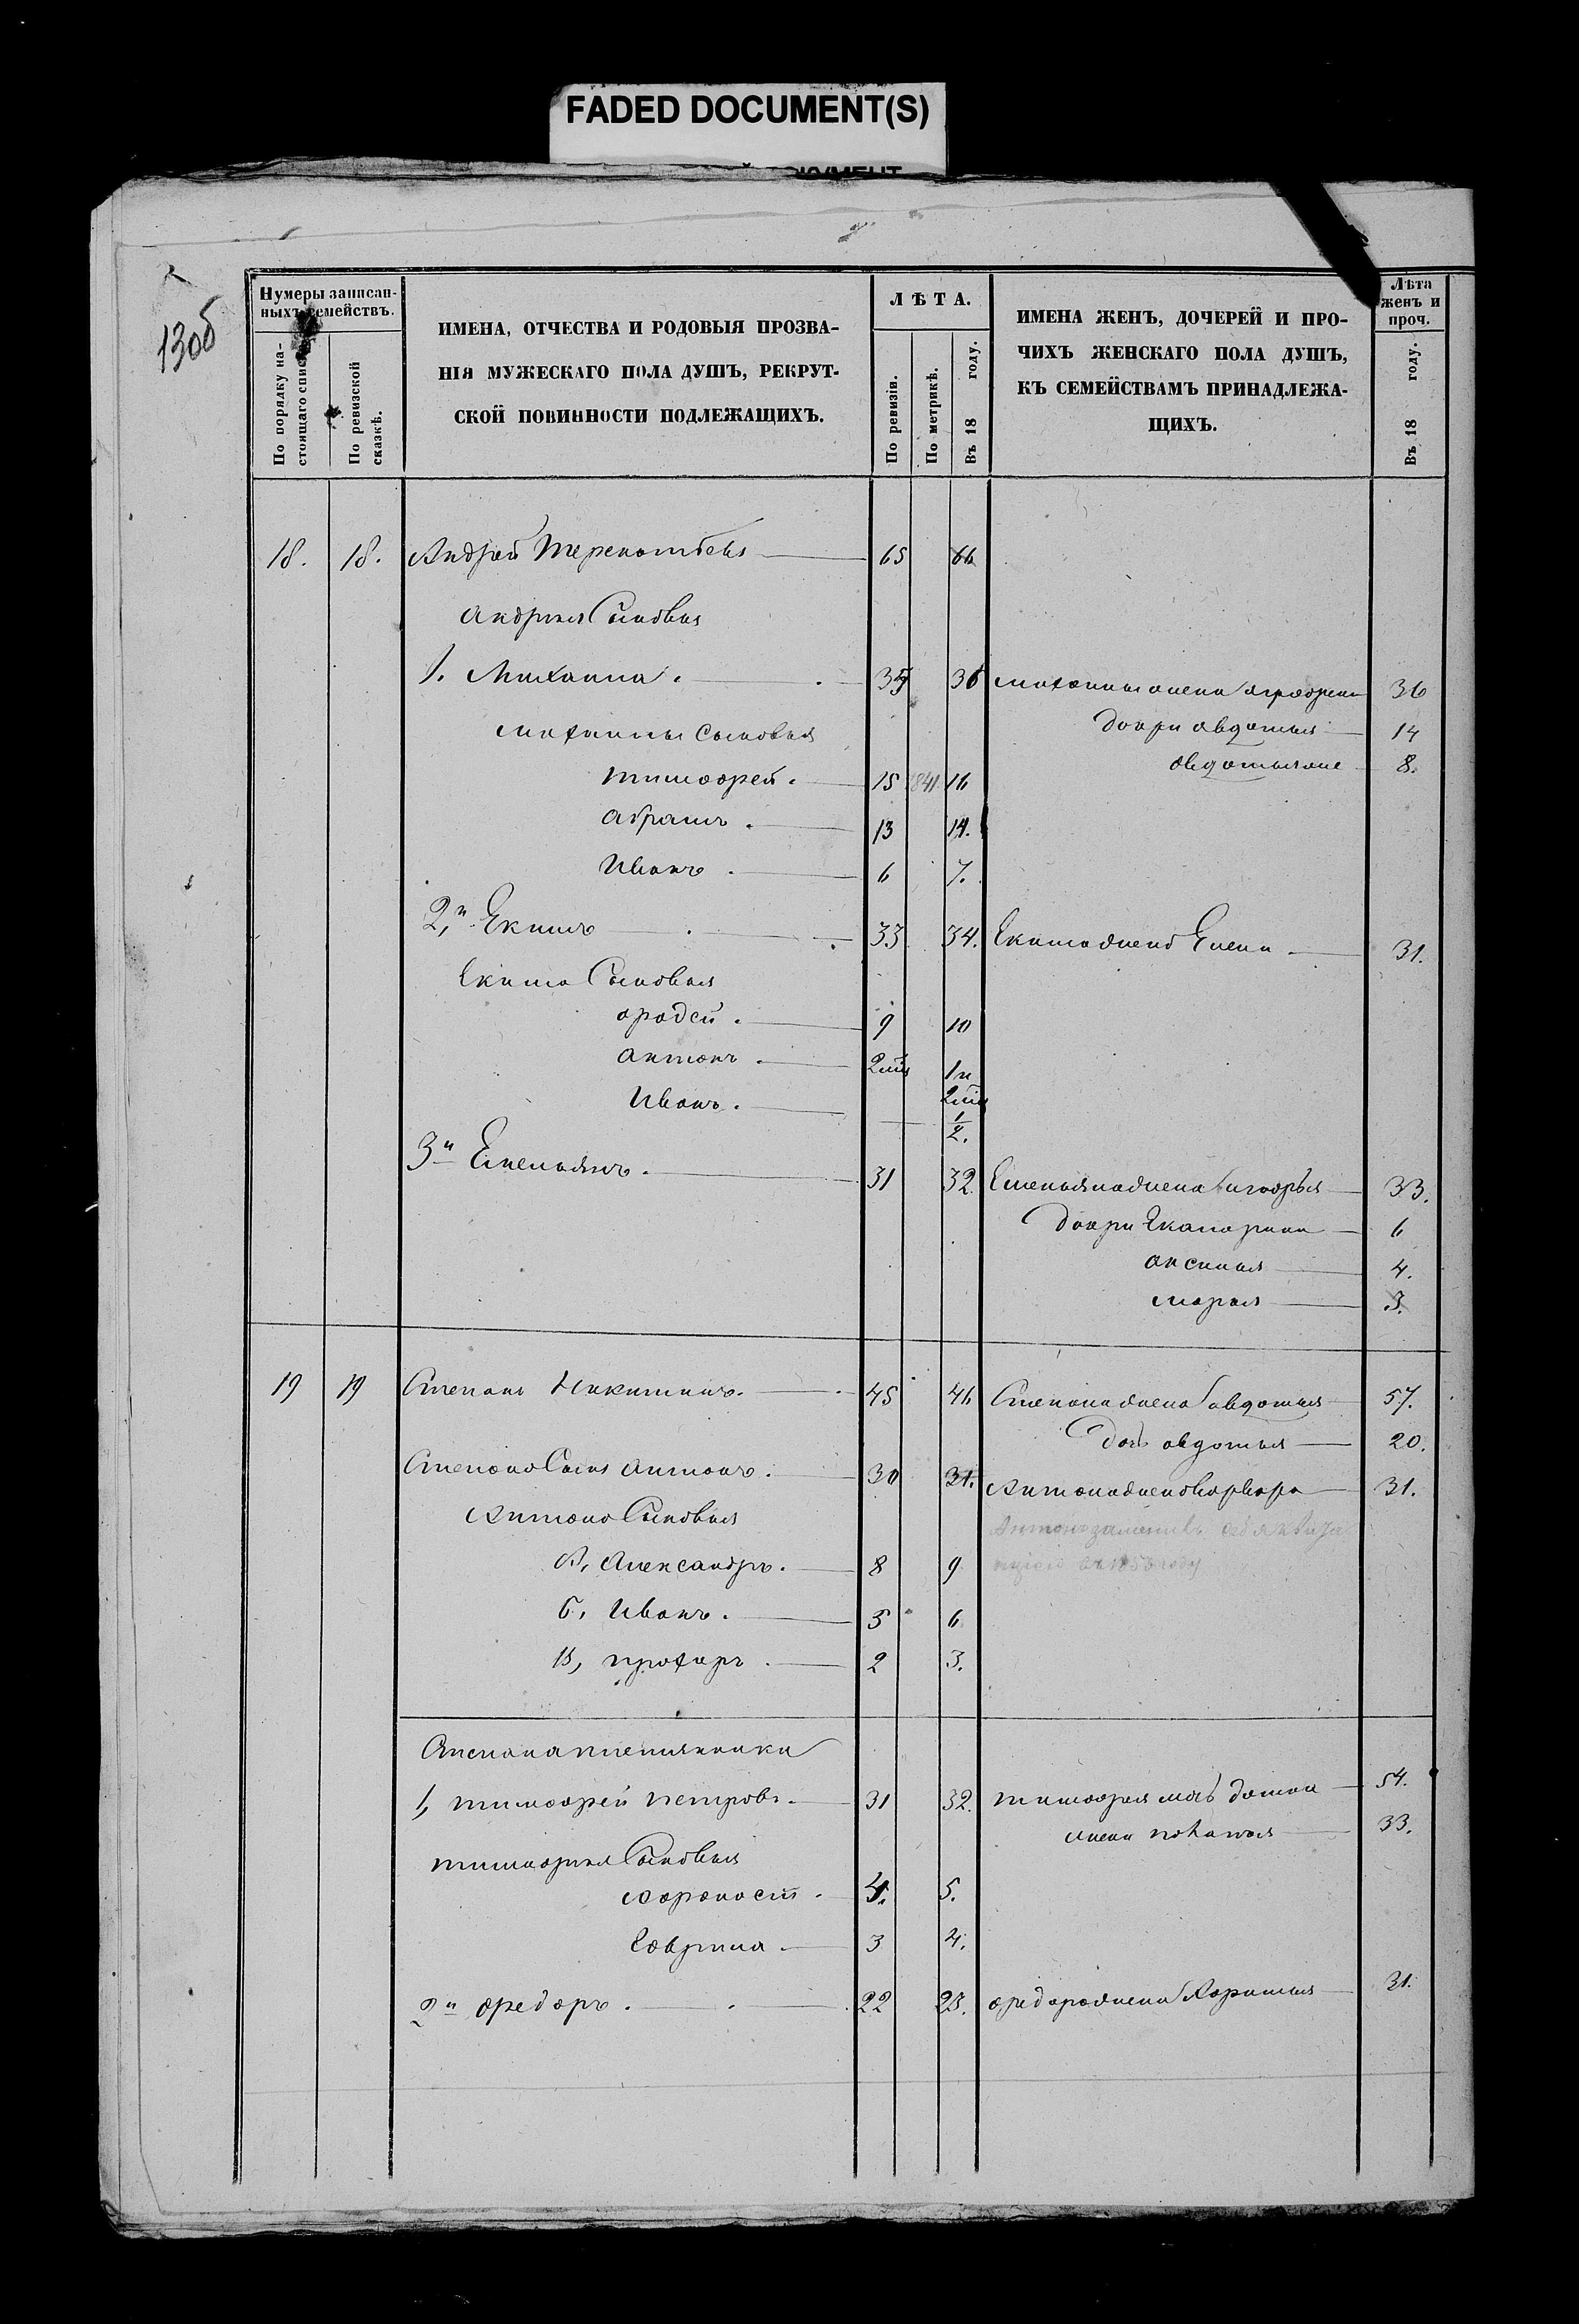 FADED DOCUMENT(S)
130б
Нумеры записан-
ныхъ семействъ.
По порядку на-
стоящаго списка
По ревизской
сказкѣ.
ИМЕНА, ОТЧЕСТВА И РОДОВЫЯ ПРОЗВА-
НІЯ МУЖЕСКАГО ПОЛА ДУШЪ, РЕКРУТ-
СКОЙ ПОВИННОСТИ ПОДЛЕЖАЩИХЪ.
ЛѢТА.
По ревизіи.
По метрикѣ.
Въ 18 году.
ИМЕНА ЖЕНЪ, ДОЧЕРЕЙ И ПРО-
ЧИХЪ ЖЕНСКАГО ПОЛА ДУШЪ,
КЪ СЕМЕЙСТВАМЪ ПРИНАДЛЕЖА-
ЩИХЪ.
Лѣта
женъ и
проч.
Въ 18 году.
18. 18. Андрей Терентьевъ 65 66
Андрея Сыновья
1. Михаила. 35 36 михаилы жена аграфена 36
михаилы сыновья дочри авдотья 14
тимофей. 15 1841 16 авдотья же 8.
абрамъ. 13 14.
Иванъ. 6 7.
2,й Екимъ 33 34. Екима жена Елена 31.
Екима Сыновья
фадей. 9 10
антонъ. 2 1 и
Иванъ. 2
1/2.
3й Емельянъ. 31 32. Емельяна жена 33.
дочри Екатерина 6
аксинья 4.
марья 3.
19 19 Степанъ Никитинъ. 45 46 Степана жена авдотья 57.
дочь авдотья 20.
Степана Сынъ антонъ. 30 31. Антона жена варвара 31.
Антона Сыновья
А, Александръ. 8 9 въ 1853 году
б, Иванъ. 5 6
В, прохоръ. 2 3.
Степана племянники
1, тимофей петровъ. 31 32. тимофея мать домна 54.
жена 33.
тимофея Сыновья
4. 5.
Гаврила. 3 4.
2й федоръ. 22 23. федора жена 31.